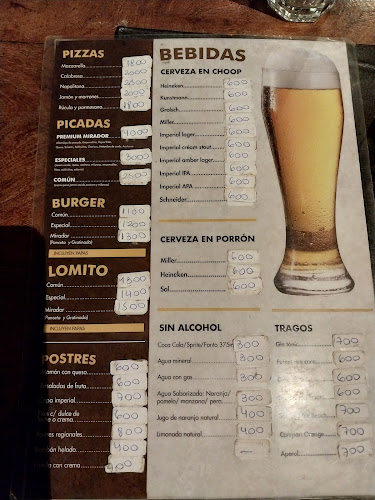 PIZZAS
Mozzarella 1800
Calabresa 2000
Napolitana 2300
Jamón y morrones
Rúcula y parmesano 1800
PICADAS
PREMIUM MIRADOR 4000
ESPECIALES 3000
COMÚN
BURGER
Común 1100
Especial 1200
Mirador 1300
(Panceta y Gratinado)
INCLUYEN PAPAS
LOMITO
Común 1300
Especial 1400
Mirador 1500
(Panceta y Gratinado)
INCLUYEN PAPAS
POSTRES
con queso 600
saladas de fruta 600
imperial 700
c/ dulce de 600
o crema
regionales 800
helado 400
con crema 400
BEBIDAS
CERVEZA EN CHOOP
Heineken 600
Kunstmann 600
Grolsch 600
Miller 600
Imperial lager 600
Imperial cream stout 600
Imperial amber lager 600
Imperial IPA 600
Imperial APA 600
Schneider 600
CERVEZA EN PORRÓN
Miller 600
Heineken 600
Sol 600
SIN ALCOHOL
Coca Cola/Sprite/Fanta 375 300
Agua mineral 300
Agua con gas 300
Agua Saborizada: Naranja/
pomelo/ manzana/ pera 300
Jugo de naranja natural 400
Limonada natural 400
TRAGOS
Gin tonic 700
700
700
700
Beach 700
Campari Orange 700
Aperol 700